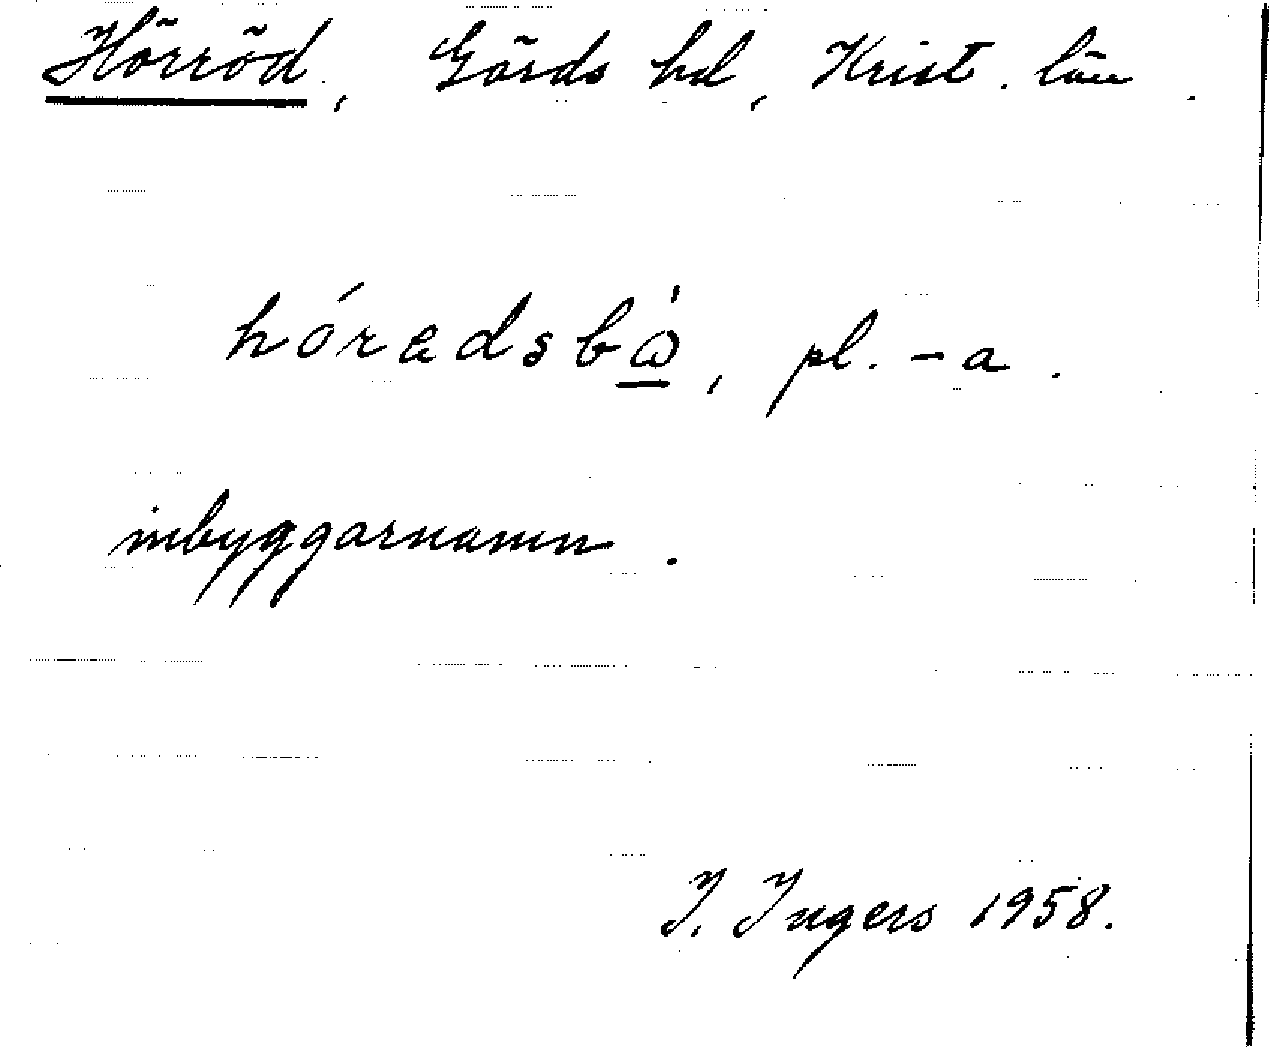 Hörröd, Gärds hd, Krist. län.
hóradsbò̱, pl. -a.
inbyggarnamn.
I. Ingers 1958.